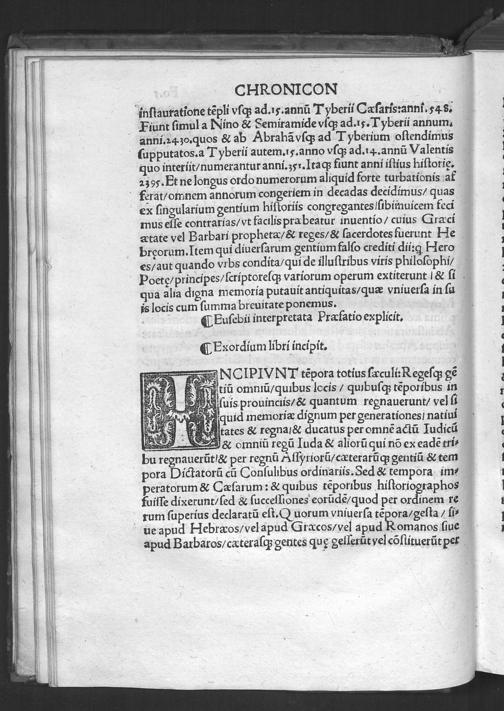 CHRONICON
instauratione tẽpli vsqꝫ ad.15.annũ Tyberii Cæsaris: anni.548.
Fiunt simul a Nino & Semiramide vsqꝫ ad.15.Tyberii annum,
anni.2430.quos & ab Abrahã vsqꝫ ad Tyberium ostendimus
supputatos.a Tyberii autem.15.anno vsqꝫ ad.14.annũ Valentis
quo interiit/numerantur anni.351.Itaqꝫ fiunt anni istius historię.
2395.Et ne longus ordo numerorum aliquid forte turbationis af
ferat/omnem annorum congeriem in decadas decidimus/quas
ex singularium gentium historiis congregantes/sibiinuicem feci
mus esse contrarias/vt facilis præbeatur inuentio/cuius Græci
ætate vel Barbari prophetæ/& reges/& sacerdotes fuerunt He
bręorum.Item qui diuersarum gentium falso crediti dii: q̃ Hero
es/aut quando vrbs condita/qui de illustribus viris philosophi/
Poetę/principes/scriptoresqꝫ variorum operum extiterunt/& si
qua alia digna memoria putauit antiquitas/quæ vniuersa in su
is locis cum summa breuitate ponemus.
¶Eusebii interpretata Præfatio explicit.
¶Exordium libri incipit.
INCIPIVNT tẽpora totius sæculi: Regesqꝫ gẽ
tiũ omniũ/quibus locis/quibusqꝫ tẽporibus in
suis prouinciis/& quantum regnauerunt/vel si
quid memoriæ dignum per generationes/natiui
tates & regna/& ducatus per omnẽ actũ Iudicũ
& omniũ regũ Iuda & aliorũ qui nõ ex eadẽ tri-
bu regnauerũt/& per regnũ Assyriorũ/cæterarũqꝫ gentiũ & tem
pora Dictatorũ cũ Consulibus ordinariis.Sed & tempora im-
peratorum & Cæsarum: & quibus tẽporibus historiographos
fuisse dixerunt/sed & successiones eorũdẽ/quod per ordinem re
rum superius declaratũ est.Quorum vniuersa tẽpora/gesta/si-
ue apud Hebræos/vel apud Græcos/vel apud Romanos siue
apud Barbaros/cæterasqꝫ gentes quę gesserũt vel cõstituerũt per